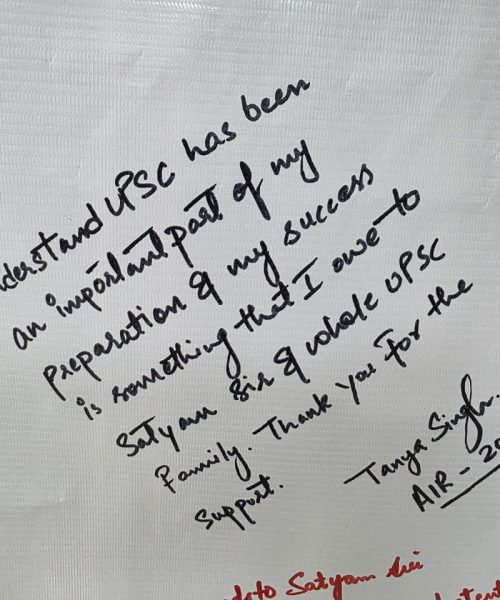 understand UPSC has been
an important part of my
preparation & my success
is something that I owe to
Satyam sir & whole UPSC
Family. Thank you for the
support.
Tanya Singh.
AIR - 20
to Satyam